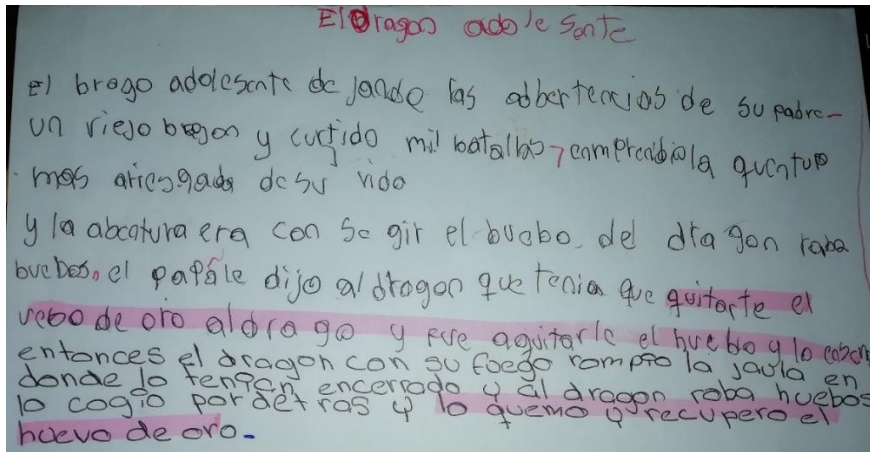 El Dragon adolesente
El brago adolesente dejando las adbertencias de su padre-
un viejo bragon y curtido mil batallas, emprendio la quentura
mas ariesgada de su vida
y la abentura era con se gir el buebo del dragon roba
buebos, el papá le dijo al dragon que tenia que quitarte el
uebo de oro al drago y fue a quitarle el huebo y lo
entonces el dragon con su fuego rompio la jaula en
donde lo tenian encerrado y al dragon roba huebos
lo cogio por detras y lo quemo y recupero el
huevo de oro.